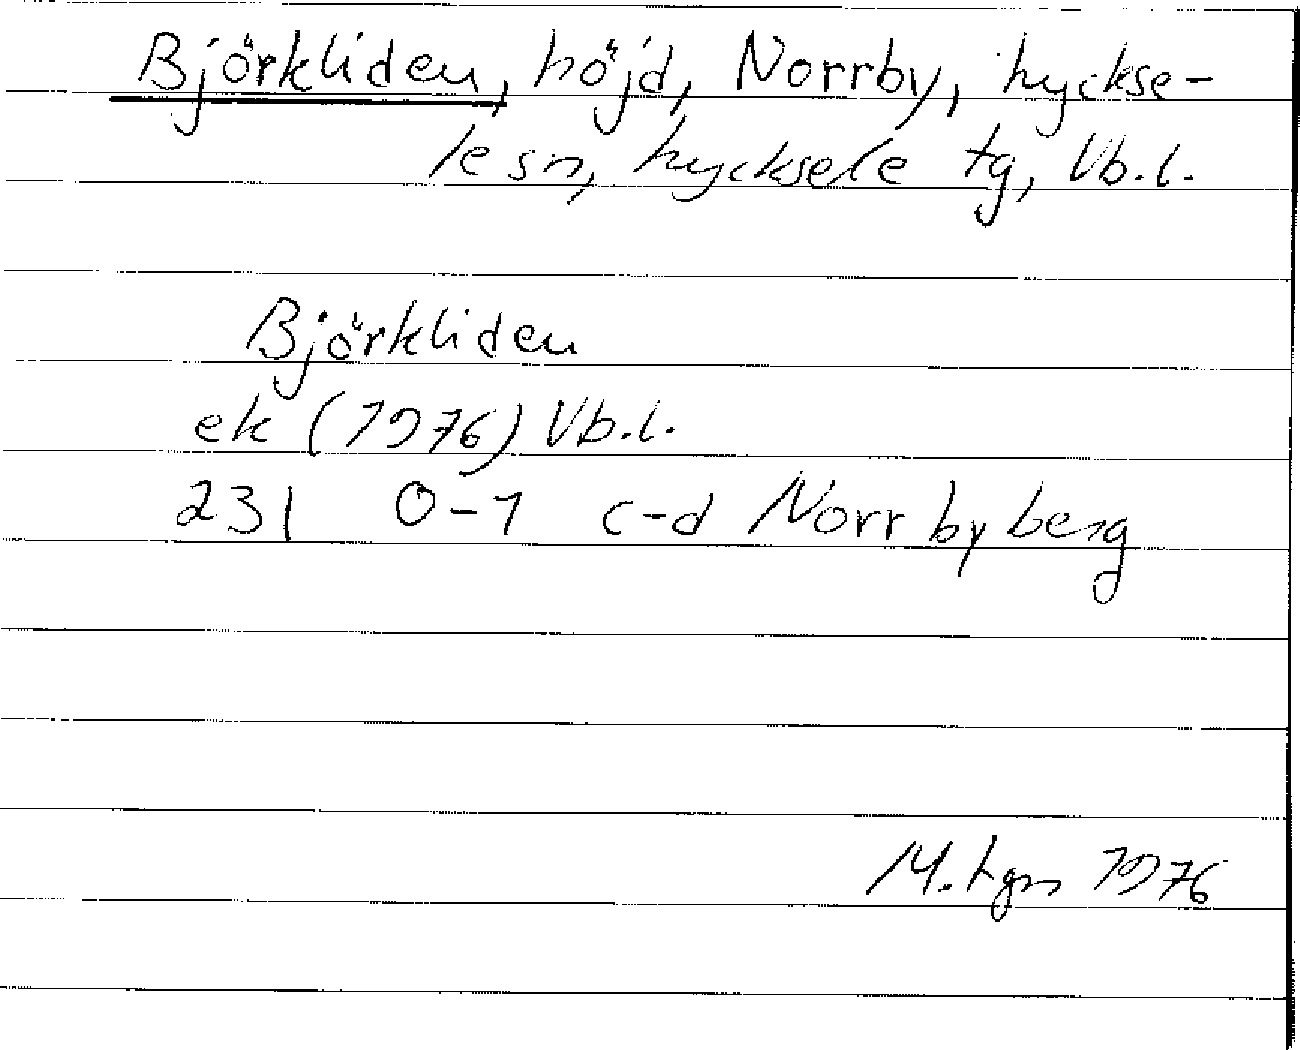 Björkliden, höjd, Norrby, Lyckse-
le sn, Lycksele tg, Vb.l.
Björkliden
ek (1976) Vb.l.
231 0-1 c-d Norrbyberg
M. 1976